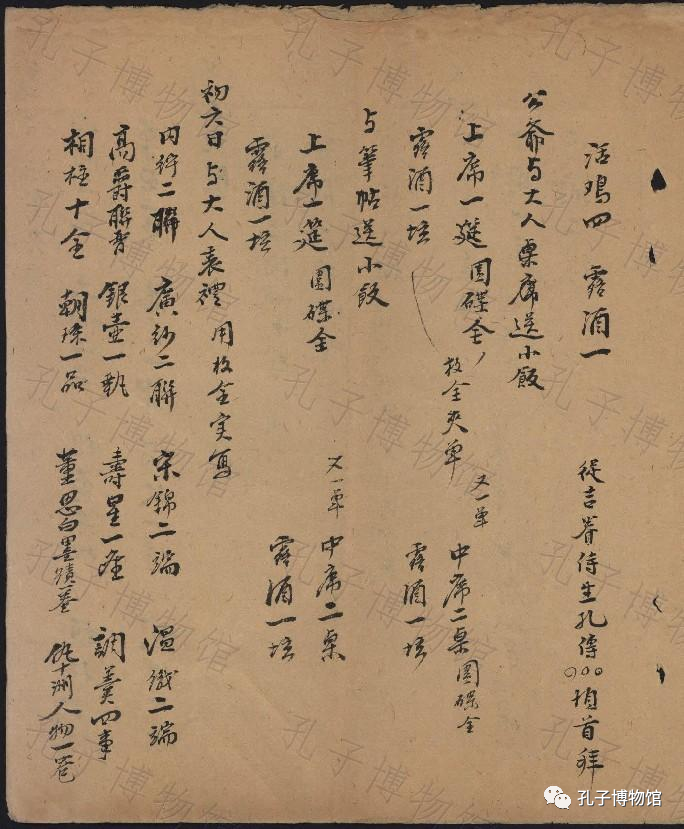 活鸡四 露酒一
從吉眷侍生孔傳○○○頓首拜
公爺与大人桌席送小飯
上席一筵 圓碟全
枚全夾单
又一单 中席二桌圓碟全
露酒一坛 露酒一坛
与筆帖送小飯
上席一筵 圓碟全
又一单 中席二桌
露酒一坛 露酒一坛
初六日与大人表禮 用枚全実写
内紵二聯 廣紗二聯 宋錦二端 温織二端
高爵聯 銀壷一執 壽星一座 調羹四事
相柱十全 朝珠一品 董思白墨蹟一卷 仇十洲人物一卷
孔子博物馆